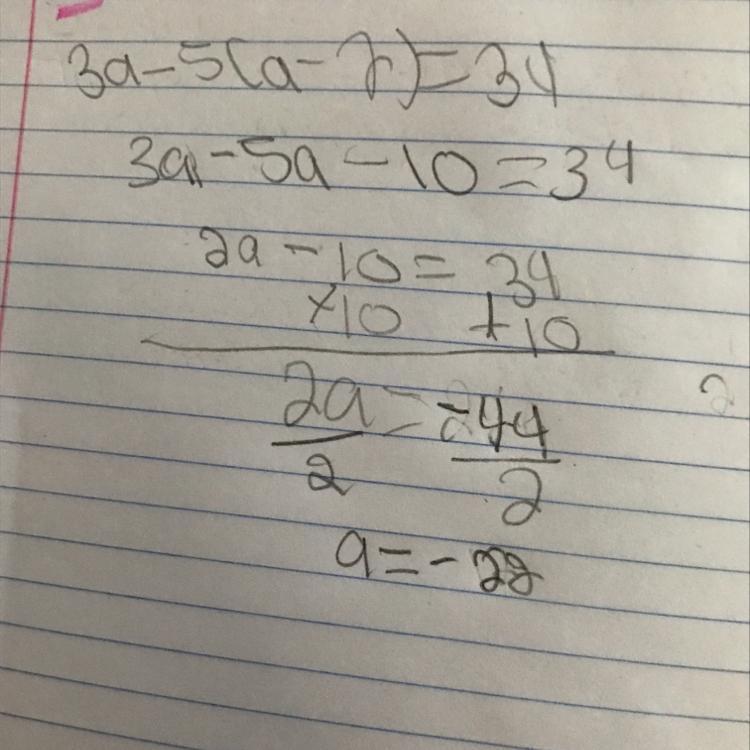 3a-5(a-2)=34
3a-5a-10=34
2a-10=34
+10 +10
2a=-44
2 2
a=-22